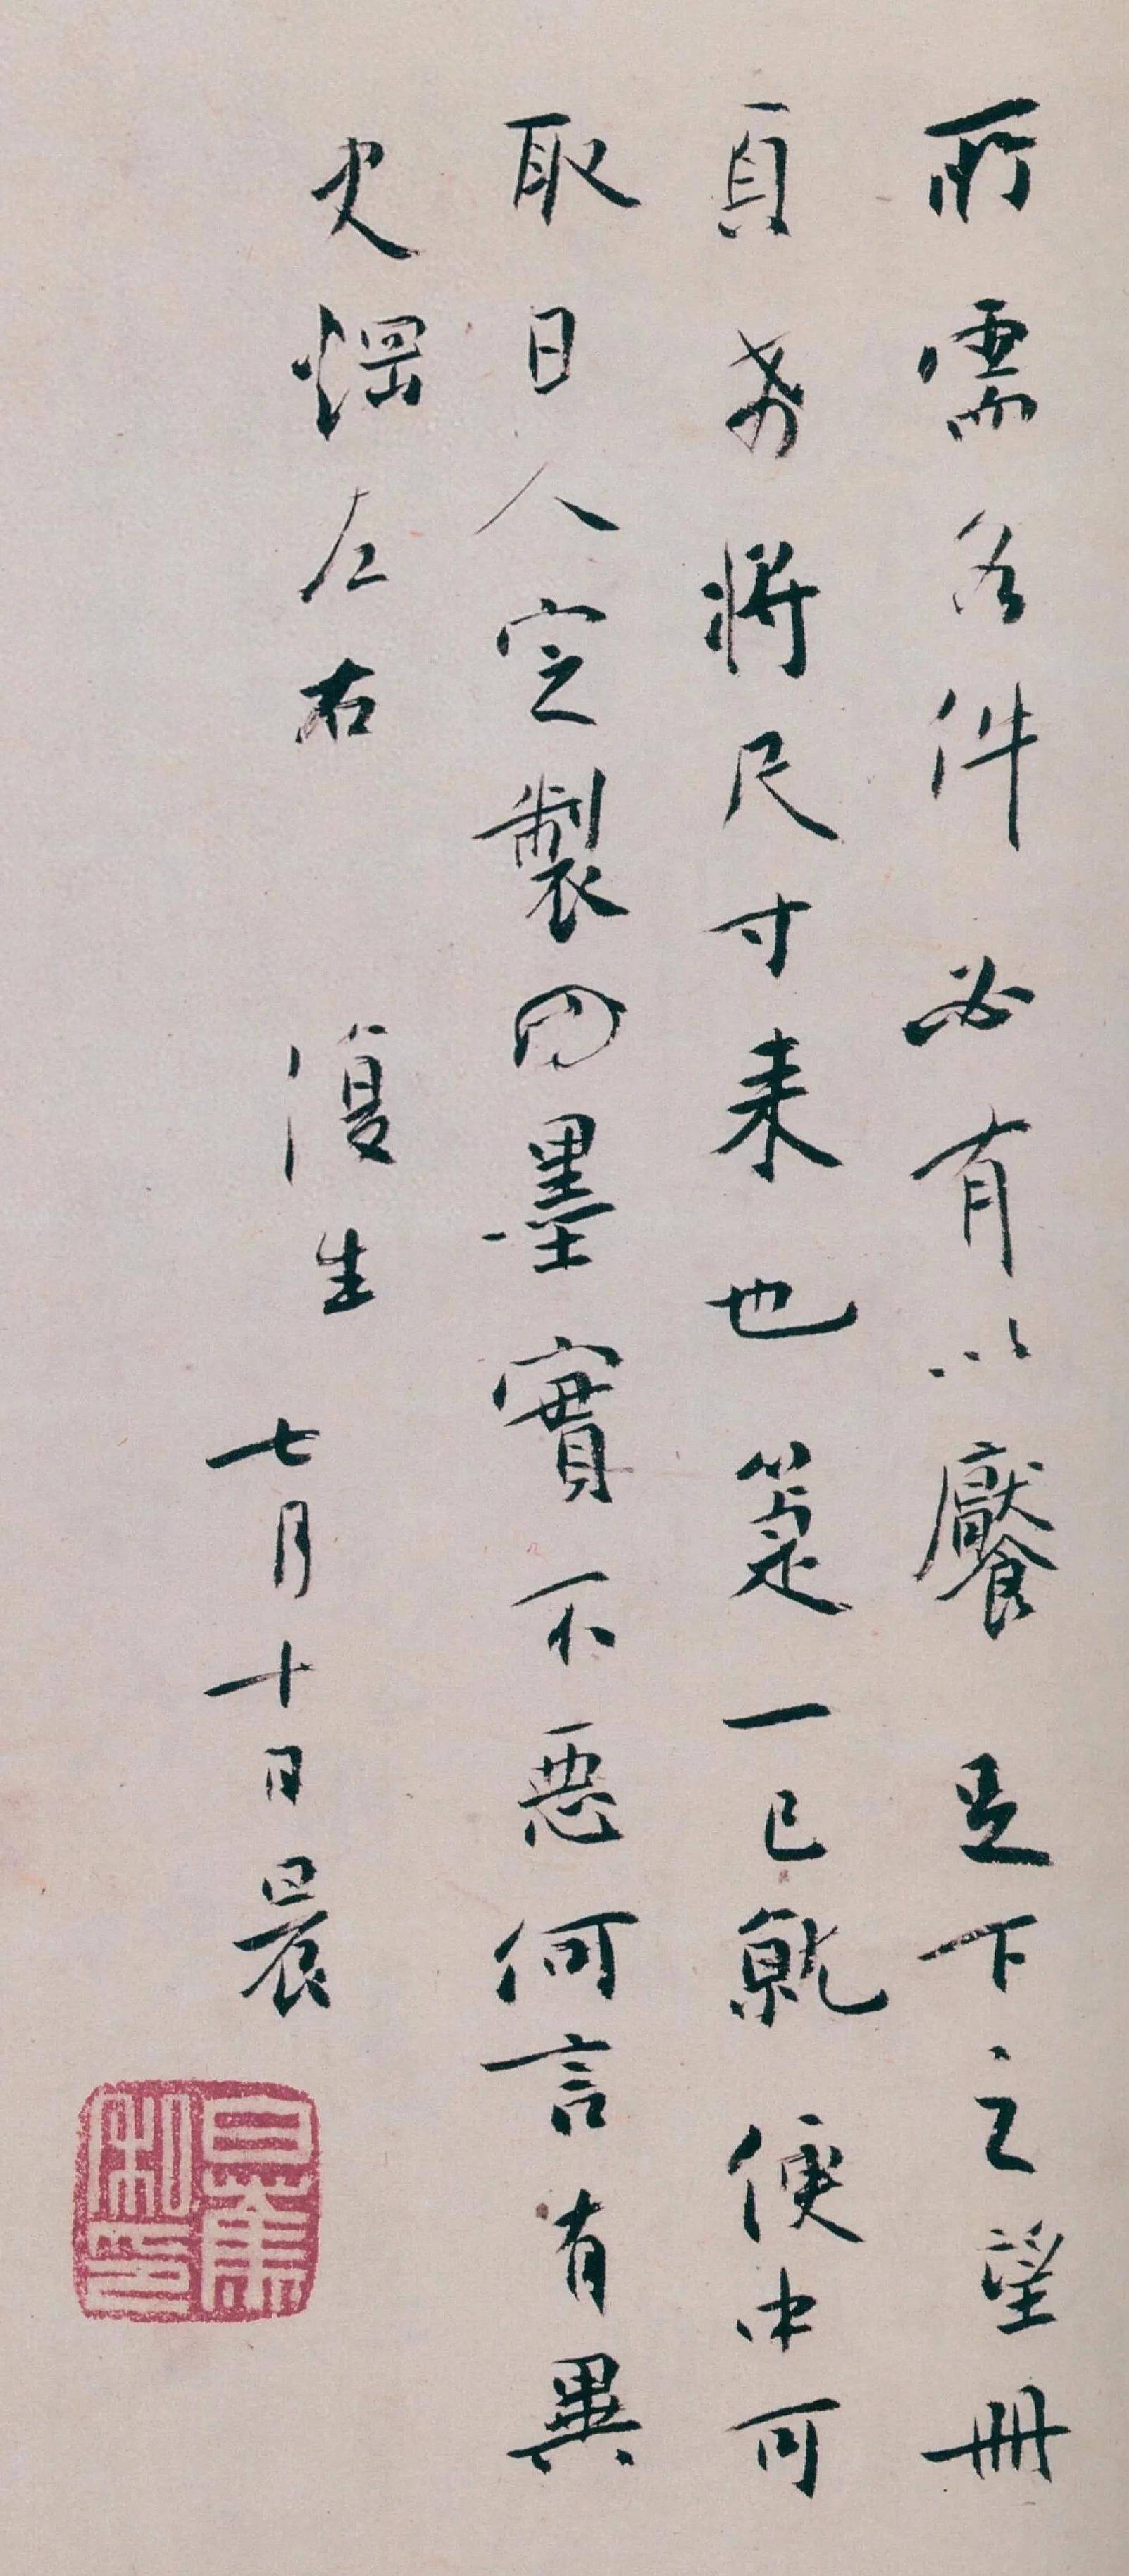 所需各件必有以饜足下之望冊
頁希將尺寸來也箑一已就便中可
取日人定製四墨實不惡何言有異
史㷡左右
復生
七月十日晨